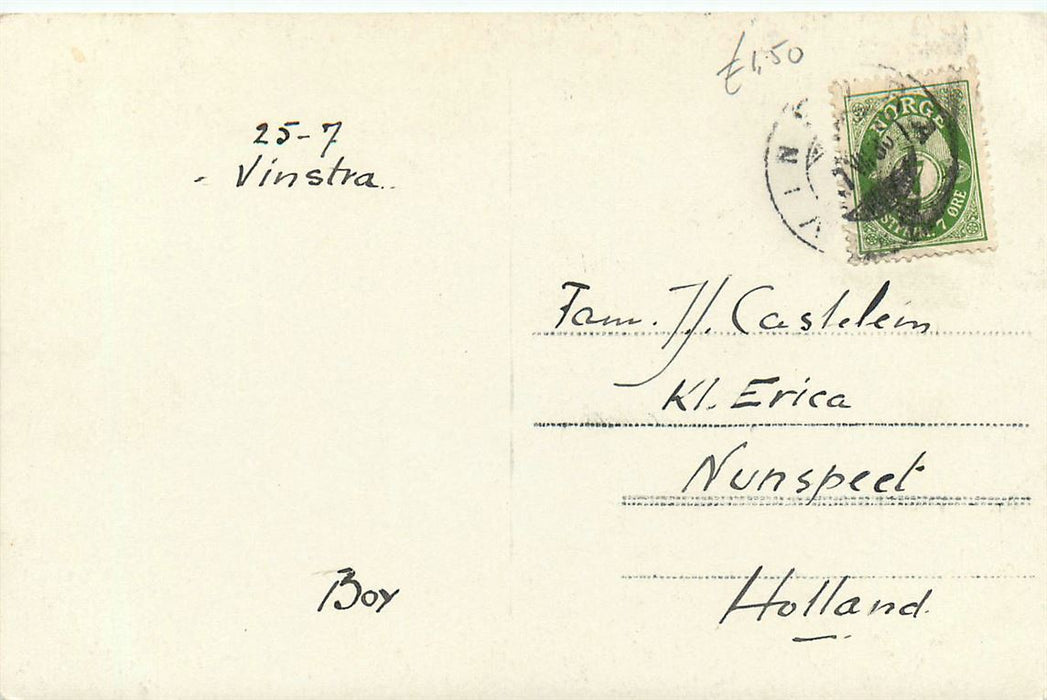 £1,50
NORGE
7 ØRE
VIN
25-7
- Vinstra.
Fam. Castelein
Kl. Erica
Nunspeet
Holland.
Boy